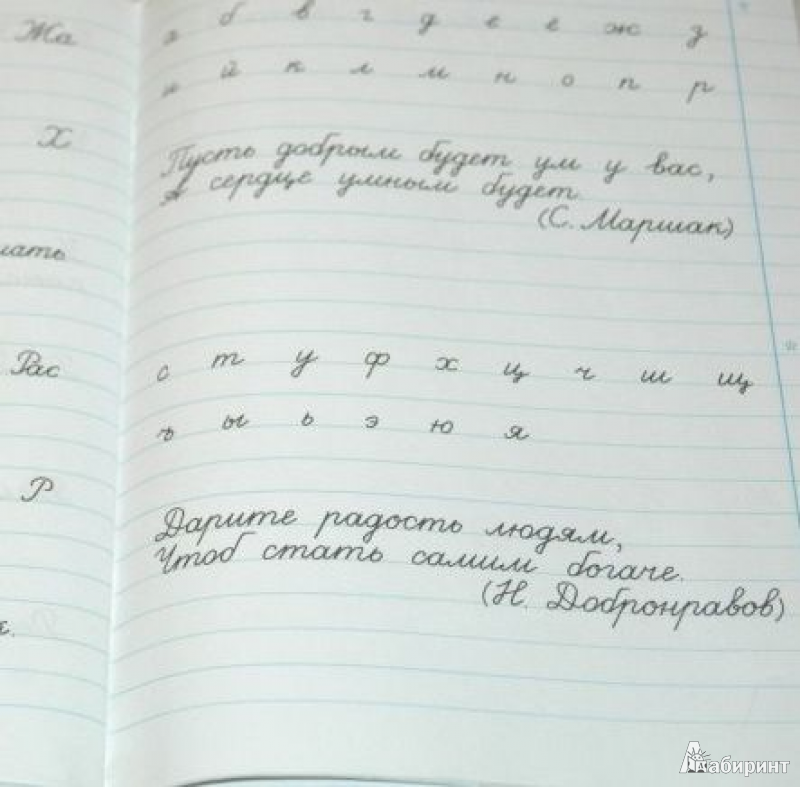 Жа
а б в г д е е ж з
и й к л м н о п р
Х
Пусть добрым будет ум у вас,
А сердце умным будет.
(С. Маршак)
Рас
с т у ф х ц ч ш щ
ъ ы ь э ю я
Р
Дарите радость людям,
Чтоб стать самим богаче.
(Н. Добронравов)
Лабиринт